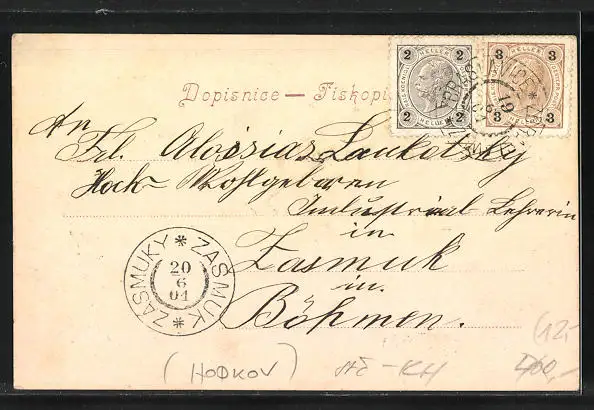 2 HELLER 2
2 HELLER 2
3 HELLER 3
3 HELLER 3
Dopisnice — Fiskopi
An
Frl. Aloisias Laukotzky
Hoch- Wohlgeboren
Industrial Lehrerin
in
Zasmuk
in
Böhmen.
ZASMUKY * ZASMUK *
20
6
04
(HODKOV)
KH
400,-